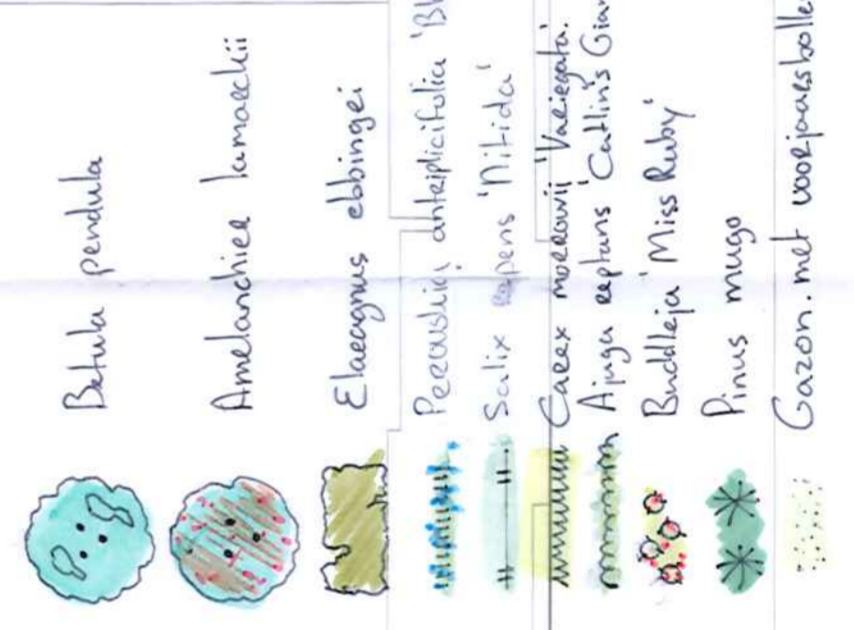 Betula pendula
Amelanchier lamarckii
Elaeagnus ebbingei
Perovskia antriplicifolia 'Bl
Salix repens 'Nitida'
Carex morrowij 'Variegata'.
Ajuga reptans 'Catlin's Gian
Buddleja 'Miss Ruby'
Pinus mugo
Gazon. met voorjaarsbolle